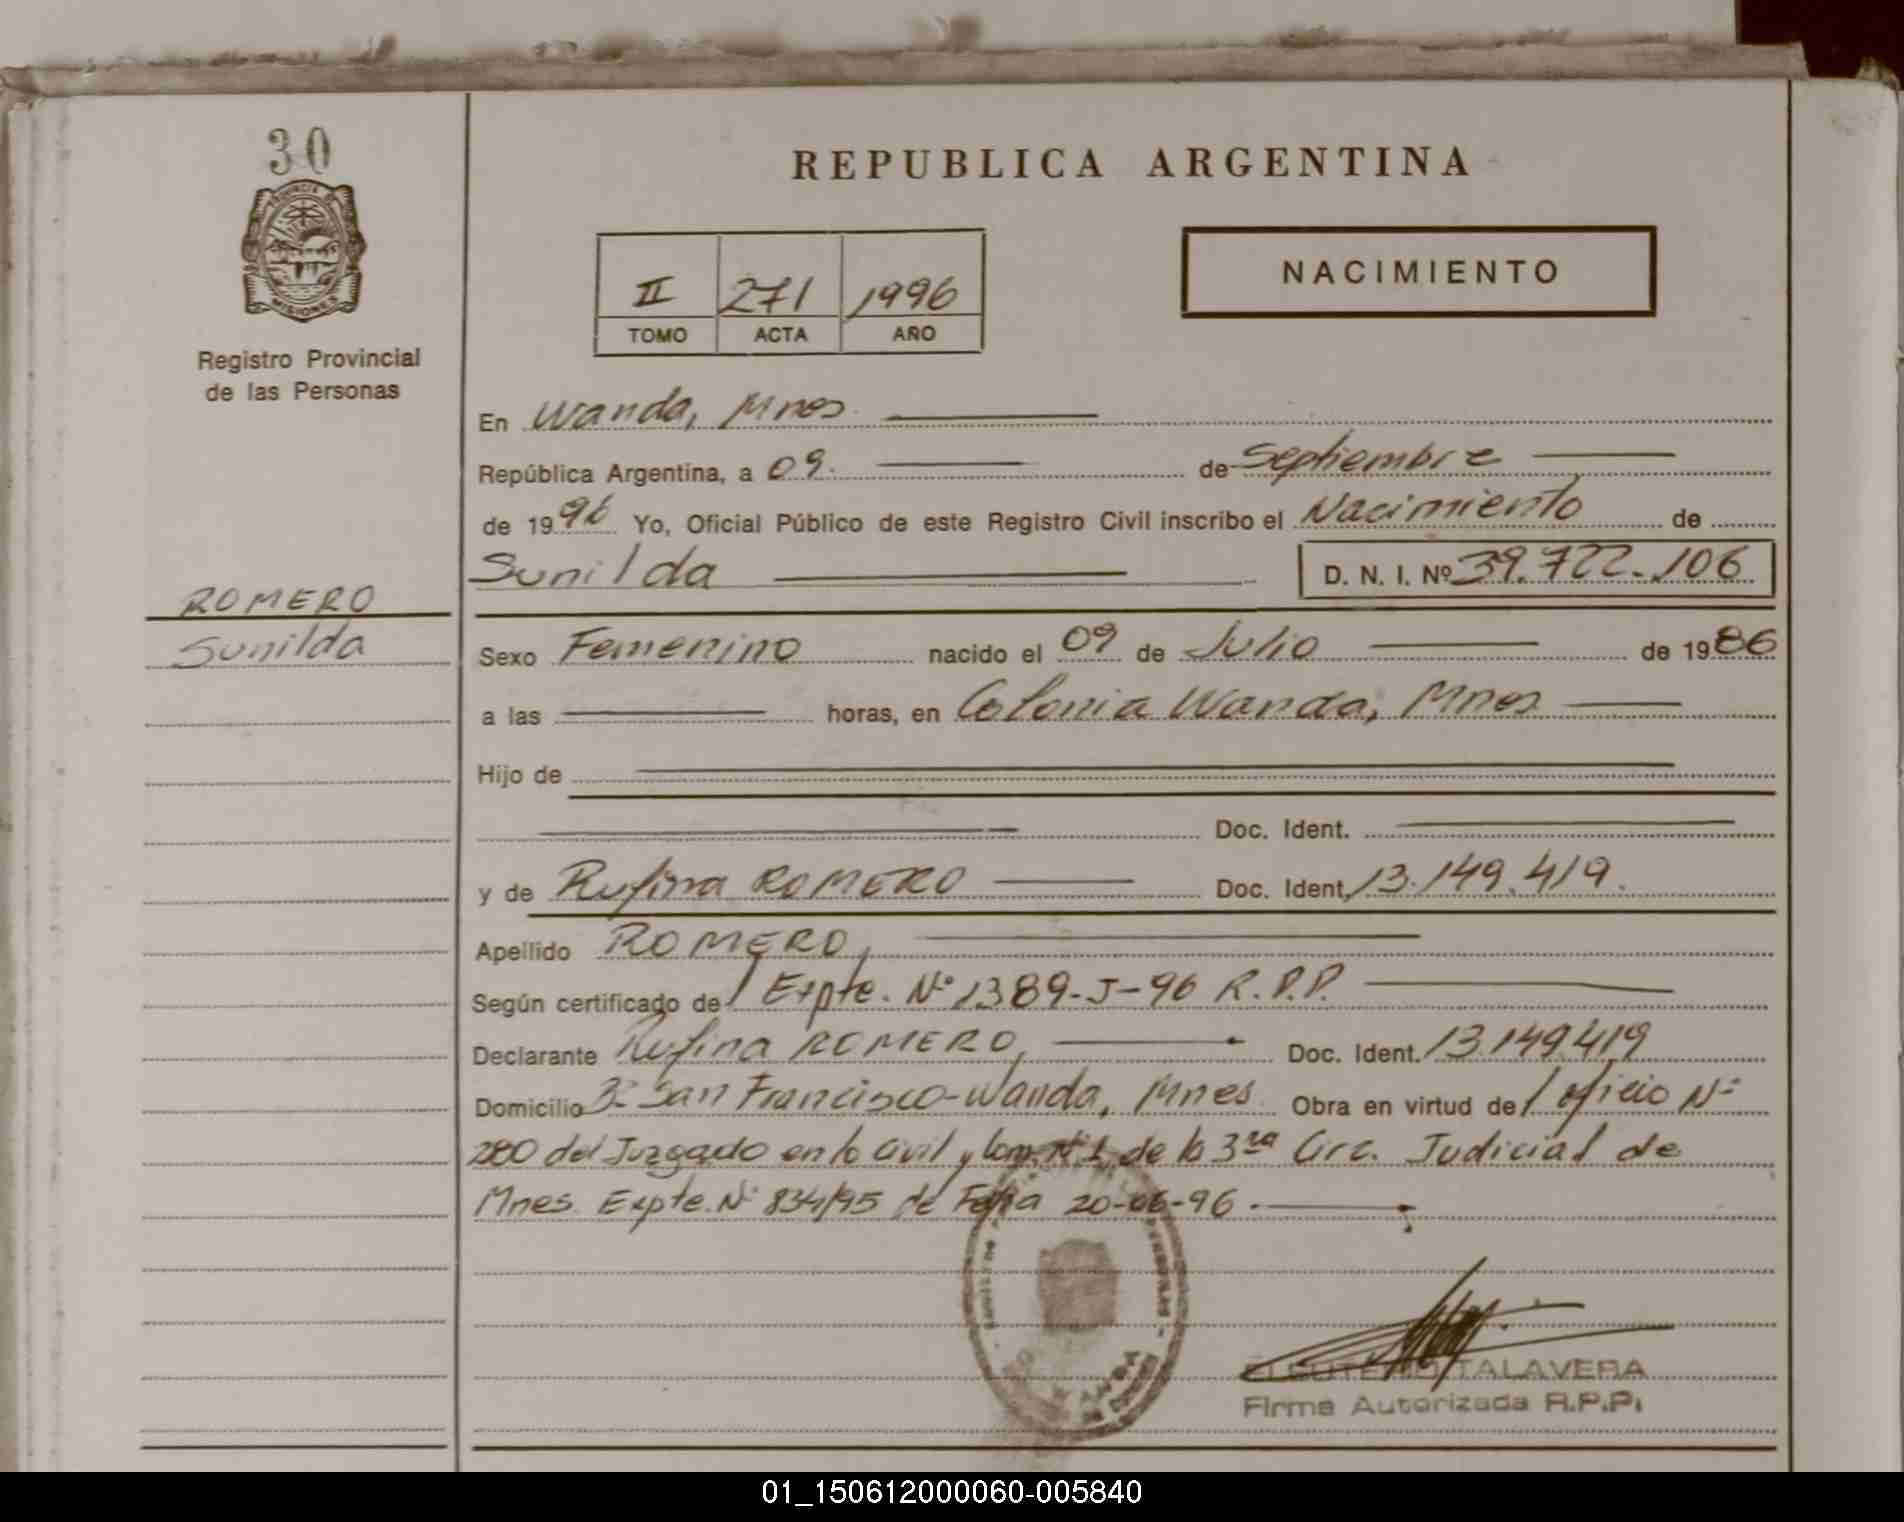 30
PROVINCIA DE
MISIONES
Registro Provincial
de las Personas
ROMERO
Sunilda
REPUBLICA ARGENTINA
II 271 1996
TOMO ACTA AÑO
NACIMIENTO
En Wanda, Mnes.
República Argentina, a 09. de Septiembre
de 1996 Yo, Oficial Público de este Registro Civil inscribo el Nacimiento de
Sunilda D. N. I. Nº 39.722.106
Sexo Femenino nacido el 09 de Julio de 1986
a las horas, en Colonia Wanda, Mnes
Hijo de
Doc. Ident.
y de Rufina ROMERO Doc. Ident. 13.149.419.
Apellido ROMERO,
Según certificado de / Expte. Nº 1389-J-96 R.P.P.
Declarante Rufina ROMERO, Doc. Ident. 13.149.419
Domicilio Bº San Francisco-Wanda, Mnes. Obra en virtud de / oficio Nº
280 del Juzgado en lo Civil y Com. Nº 1 de la 3ra Circ. Judicial de
Mnes. Expte. Nº 834/95 de Fecha 20-06-96.
WANDA
ELEUTERIO TALAVERA
Firma Autorizada R.P.P.
01_150612000060-005840